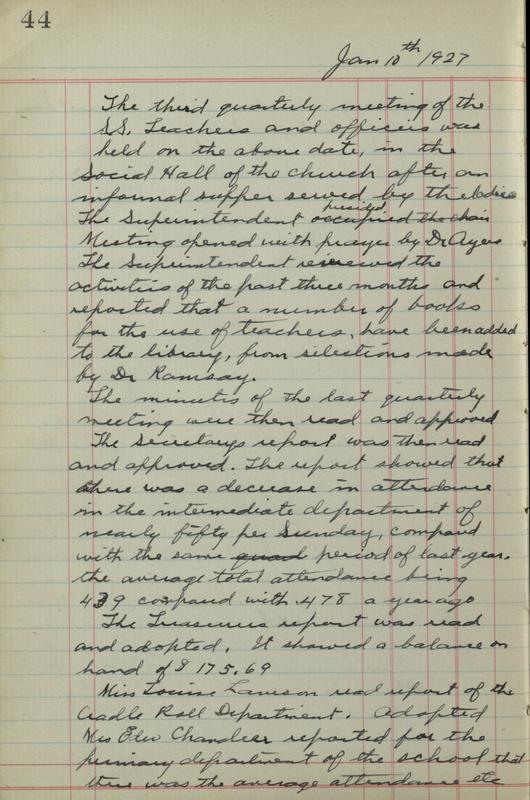 44
Jan 10th 1927
The third quarterly meeting of the
S.S. Teachers and officers was
held on the above date, in the
Social Hall of the church after an
informal supper served by the ladies
presided
The Superintendent occupied the chair
Meeting opened with prayer by Dr Ayers
The Superintendent reviewed the
activities of the past three months and
reported that a number of books
for the use of teachers, have been added
to the library, from selections made
by Dr Ramsay.
The minutes of the last quarterly
meeting were then read and approved
The Secretarys report was then read
and approved. The report showed that
there was a decrease in attendance
in the intermediate department of
nearly fifty per Sunday, compared
with the same quard period of last year.
the average total attendance being
439 compared with 478 a year ago
The Treasurers report was read
and adopted. It showed a balance on
hand of $175.69
Miss Louise read report of the
Cradle Roll Department. Adopted
Chandler reported for the
primary department of the school that
there was the average attendance etc